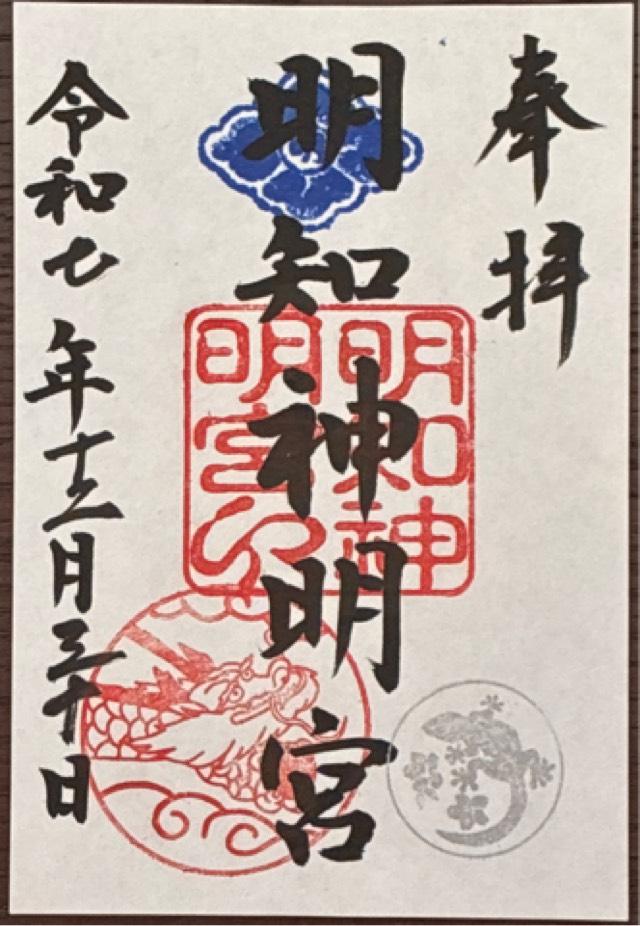 奉拝
明知神明宮
明知神
明宮印
令和七年十二月三十日